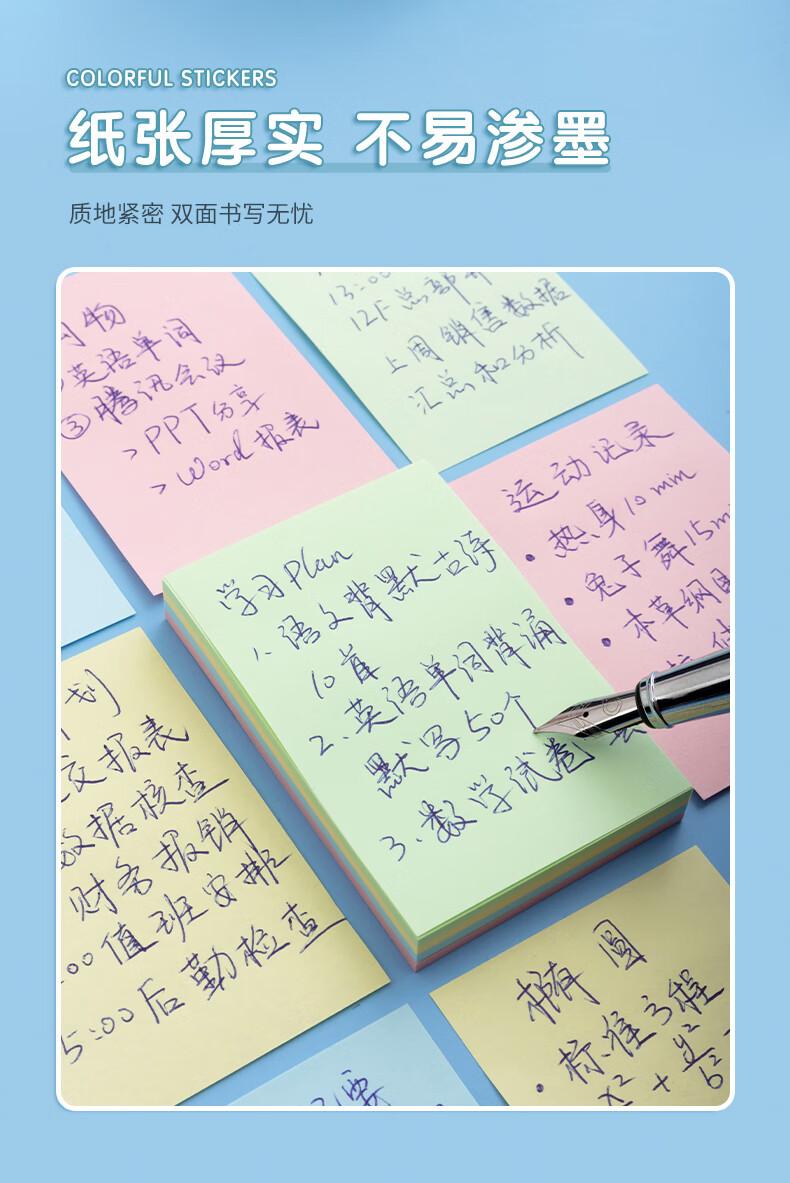 COLORFUL STICKERS
纸张厚实 不易渗墨
质地紧密 双面书写无忧
英语单词
③腾讯会议
>PPT分享
>Word报表
13:00
12F总部
上周销售数据
汇总和分析
运动记录
·热身10min
·兔子舞15m
·本草纲目
学习Plan
1、语文背默古诗
10首
2、英语单词背诵
默写50个
3、数学试卷
划
交报表
数据核查
财务报销
:00值班安排
5:00后勤检查
椭圆
·标准方程
x²+y²
b²
要